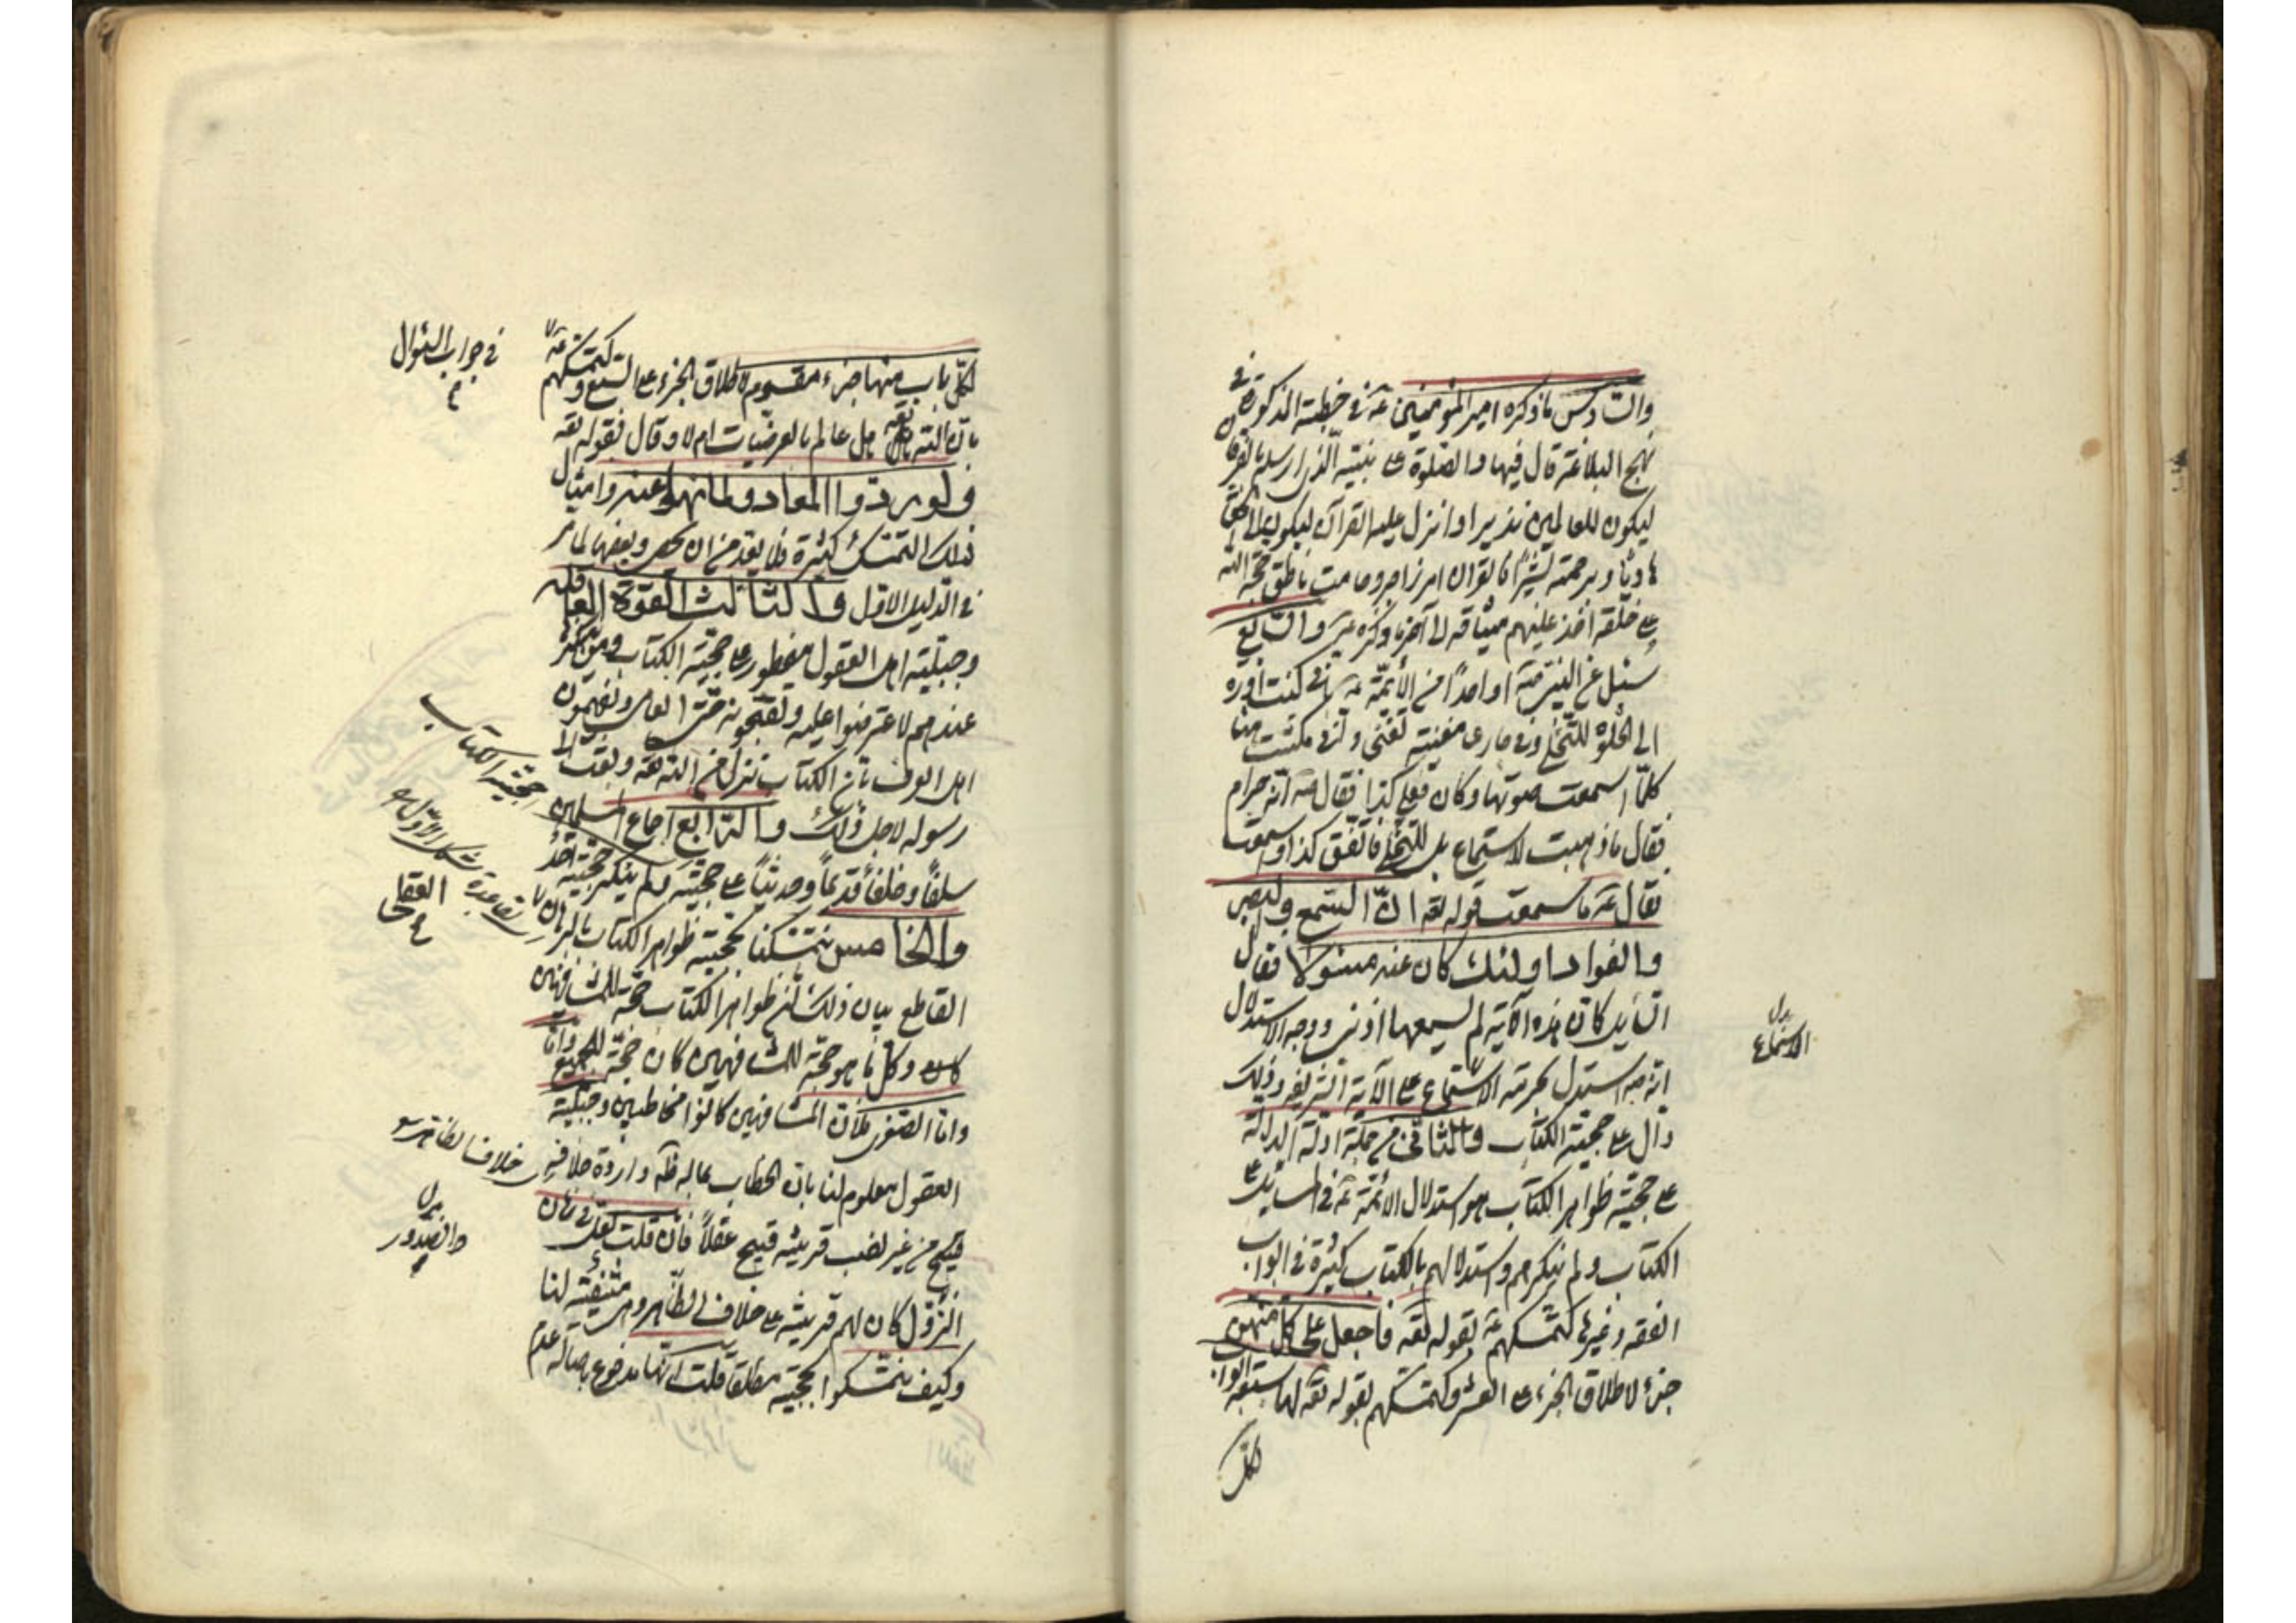 والسادس ما ذكره امير المؤمنين عه في خطبته المذكورة في
نهج البلاغة قال فيها والصلوة على نبيه الذى ارسله بالفرقان
ليكون للعالمين نذيرا وانزل عليه القرآن ليكون الى الحق
هاديا وبرحمته بشيرا فالقران امر زاجر وصامت ناطق حجة الله
على خلقه اخذ عليهم ميثاقه الى آخر ما ذكره عه والسابع
سئل عن النبي صه او احدا من الأئمة عه انى كنت اورد
الى الخلوة للتخلى وفى جارى مغنية تغنى وانى مكثت
كلما سمعت صوتها وكان فعلى كذا فقال عه انه حرام
فقال ما ذهبت لاستماع بل للتخلى فاتفق كذا وسمعت
فقال عه ما سمعت قوله تعه ان السمع والبصر
والفواد اولئك كان عنه مسئولا فقال
السايل كان هذه الآية لم يسمعها اذنى ووجه الاستدلال
انه عه استدل بحرمة الاستماع على الآية الشريفة وذلك
دال على حجية الكتاب والثانى من جملة ادلة الدالة
على حجية ظواهر الكتاب هو استدلال الائمة عه في المسايل على
الكتاب ولم ينكرهم واستدلالهم بالكتاب كثيرة في ابواب
الفقه وغيرها كتمسكهم عه بقوله تعه فاجعل على كل منهن
جزء لاطلاق الجزء على العشر وكتمسكهم بقوله تعه لها سبعة ابواب
لكل
بدل
الاستماع
لكل باب منها جزء مقسوم لاطلاق الجزء على السبع وكتمسكهم عه
بان الله تعه هل عالم بالعرضيات ام لا وقال فقوله تعه
ولو ردوا لعادوا لما نهوا عنه وامثال
ذلك التمسك كثيرة فلا يعد من ان يحصى وبعضها لما مر
في الدليل الاول والثالث القوة العاقلة
وجبلية اهل العقول مفطور على حجية الكتاب ومن
عندهم لاعترضوا عليه وتقبحونه حتى العامى ويفهمون
اهل العرف بان الكتاب نزل من الله تعه وبعث
رسوله لاجل ذلك والرابع اجماع المسلمين
سلفا وخلفا قديما وحديثا على حجيته ولم ينكر حجيته احد
والخامس تمسكنا بحجية ظواهر الكتاب بالبرهان
القاطع بيان ذلك ان ظواهر الكتاب حجة للمشافهين
وكل ما هو حجة للمشافهين كان حجة للجميع واما
واما الصغرى فلان المشافهين كانوا مخاطبين وجبلية
العقول معلوم لنا بان الخطاب بما له ظه وارادة خلافه
قبيح من غير نصب قرينة قبيح عقلا فان قلت لعل في زمان
النزول كان لهم قرينة على خلاف الظاهر وهى منتفية لنا
وكيف تتمسكوا بحجيته مطلقا قلت انها مدفوع باصالة عدم
في جواب السئوال
حجية الكتاب
بقاعدة شكل الاول
العقلى
خلاف الظاهر
بدل
والصدور